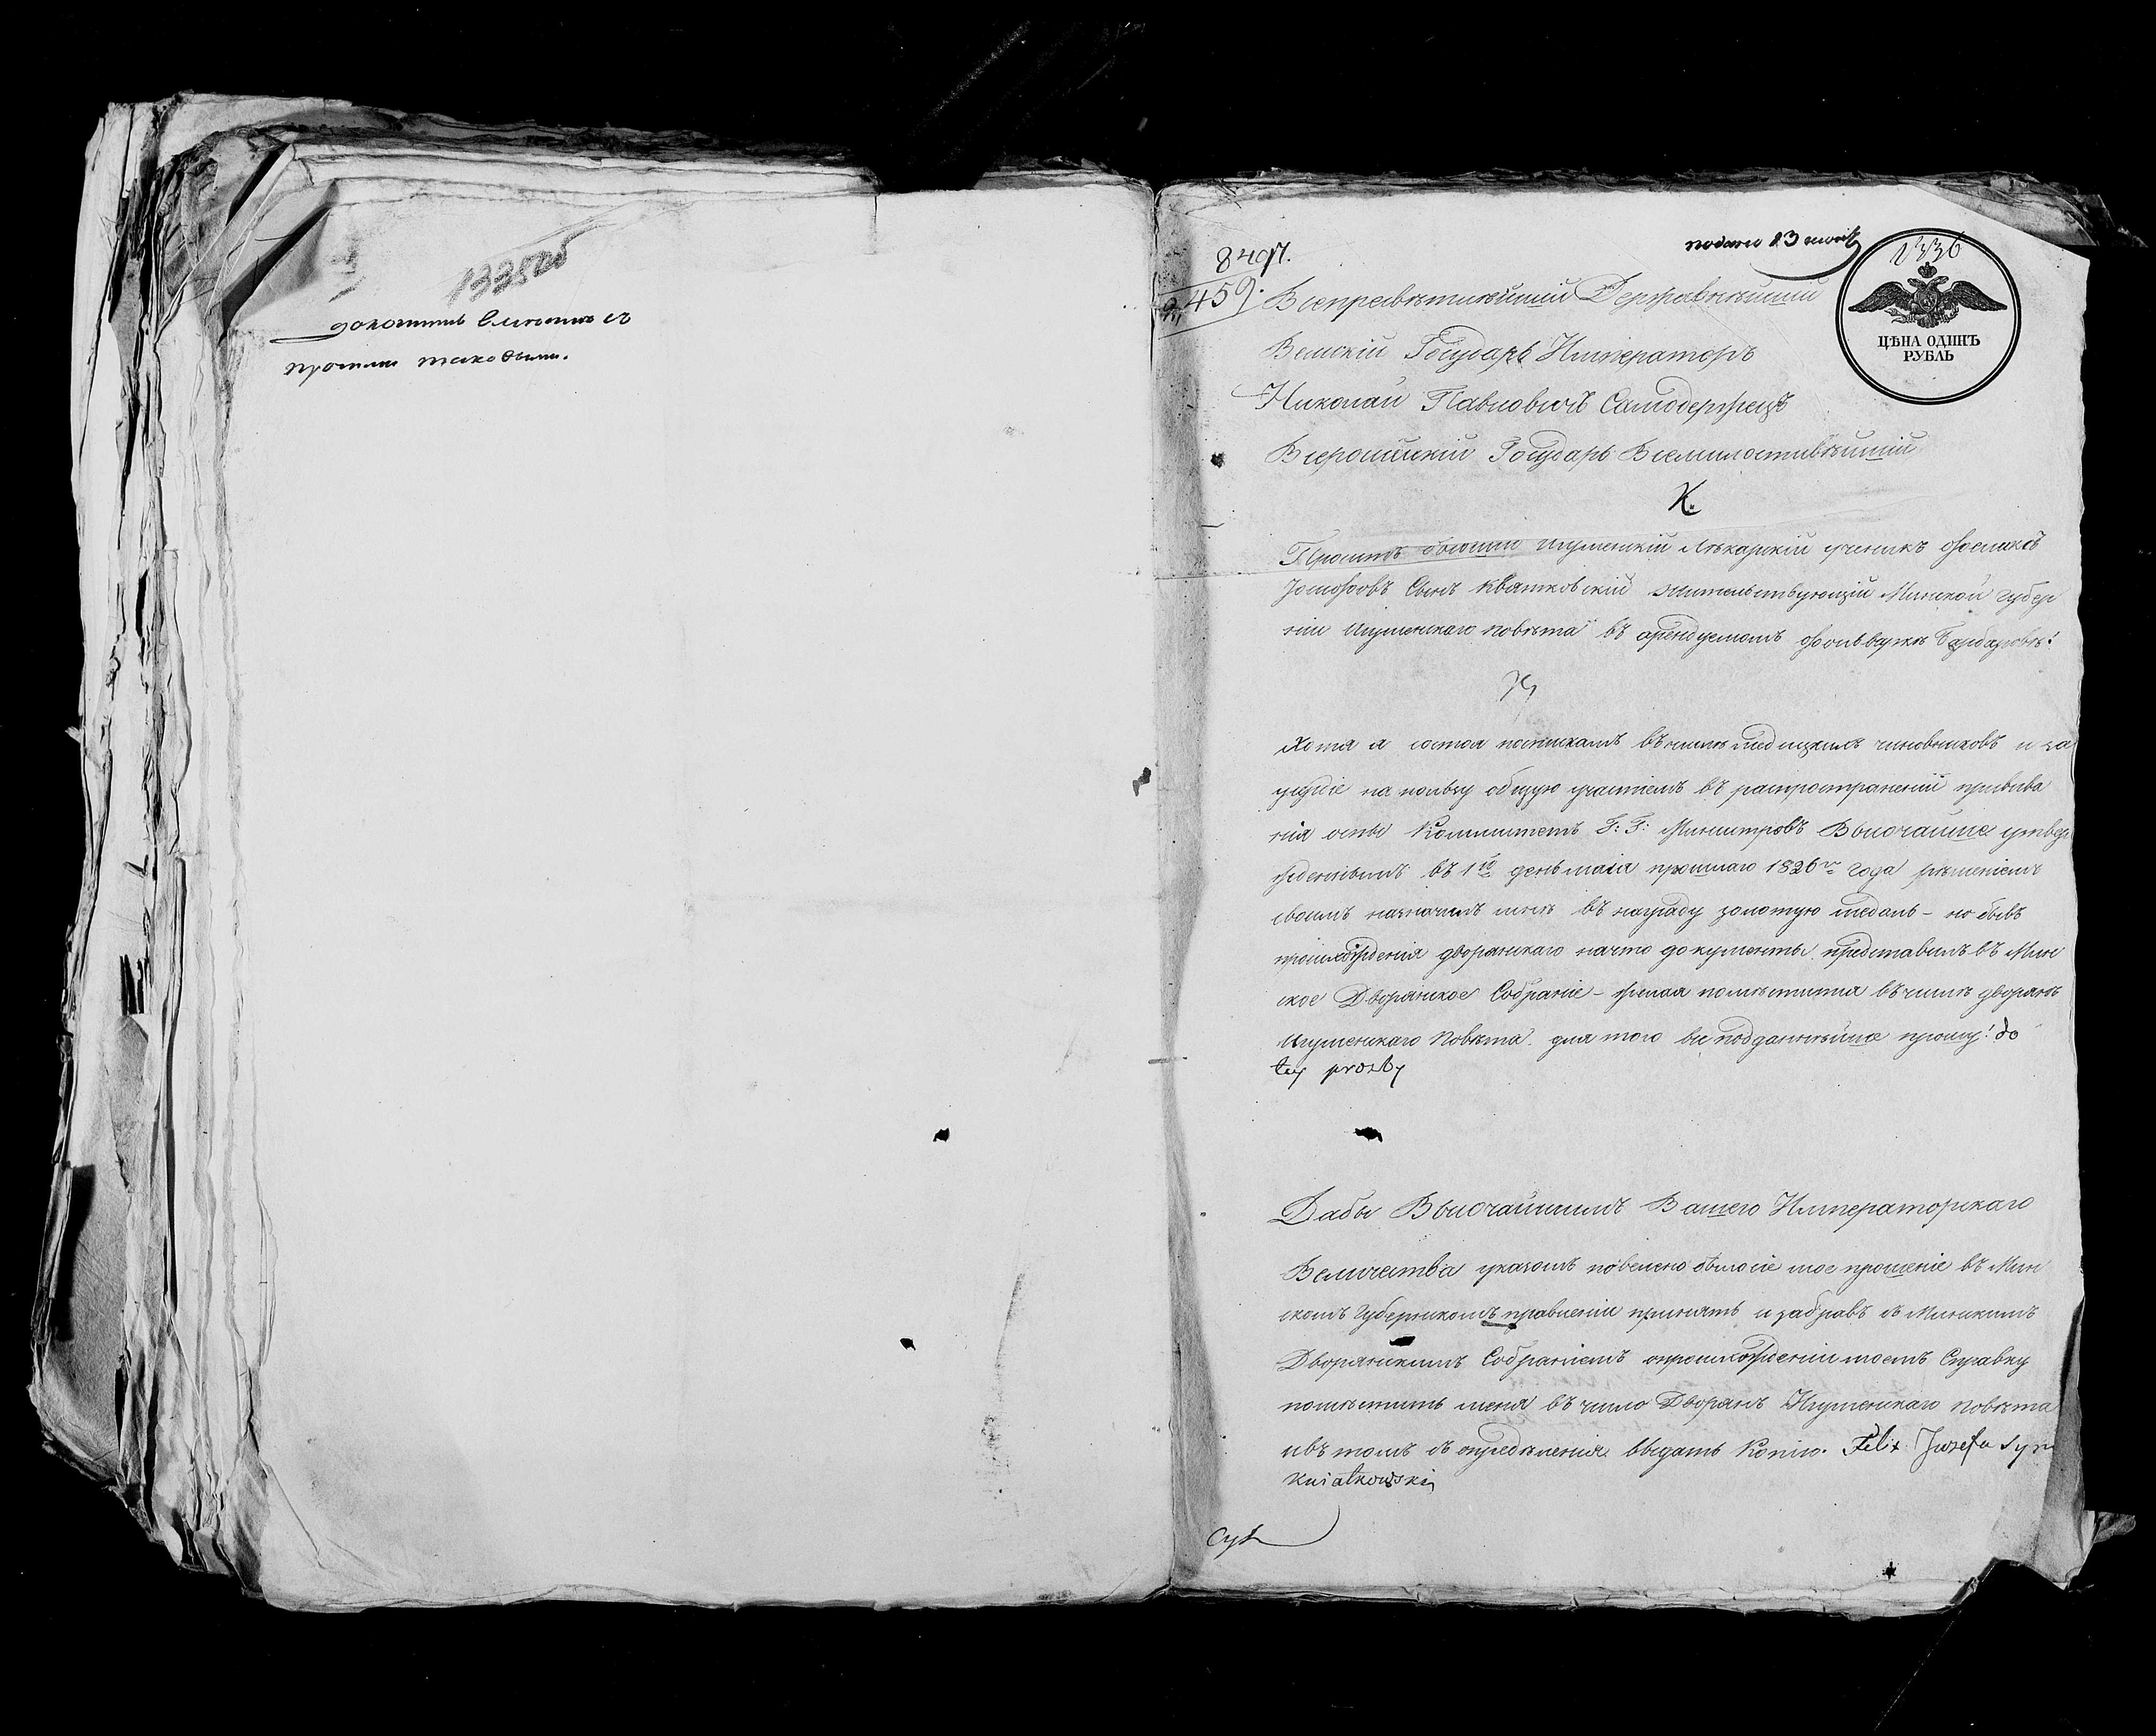 1335 об
доложить вместе съ
прочими таковыми.
подано 23 маія
1336
ЦѢНА ОДИНЪ
РУБЛЬ
8497.
459.
Всепресвѣтлѣйшій Державнѣйшій
Великій Государь Императоръ
Николай Павловичъ Самодержецъ
Всероссійскій Государь Всемилостивѣйшій
К.
Проситъ бывшій Игуменскій Лѣкарскій ученикъ Феликсъ
Іосифовъ Сынъ Квятковскій жительствующій Минской Губер
ніи Игуменскаго повѣта въ арендуемомъ фольваркѣ Барбаровѣ!
Хотя я состоя въ числѣ чиновниковъ и за
усердіе на пользу общую участіемъ въ распространеніи прививa
нія оспы Коммитетъ Г: Г: Министровъ Высочайше утвер
жденнымъ въ 1й день маія прошлаго 1826го года рѣшеніемъ
своимъ назначилъ мнѣ въ награду золотую медаль – но бывъ
происхожденія дворянскаго на что документы представилъ въ Мин
ское Дворянское Собраніе – желая помѣститься въ числѣ дворянъ
Игуменскаго Повѣта. для того всеподданнѣйше прошу! do
tey prozby
Дабы Высочайшимъ Вашего Императорскаго
Величества указомъ повелено было сіе мое прошеніе въ Мин
скомъ Губернскомъ правленіи принять и забравъ съ Минскимъ
Дворянскимъ Собраніемъ о происхожденіи моемъ Справку
помѣстить меня въ число Дворянъ Игуменскаго повѣта
и въ томъ съ опредѣленія выдать Копію. Felix Jozefa Syn
Kwiatkowski